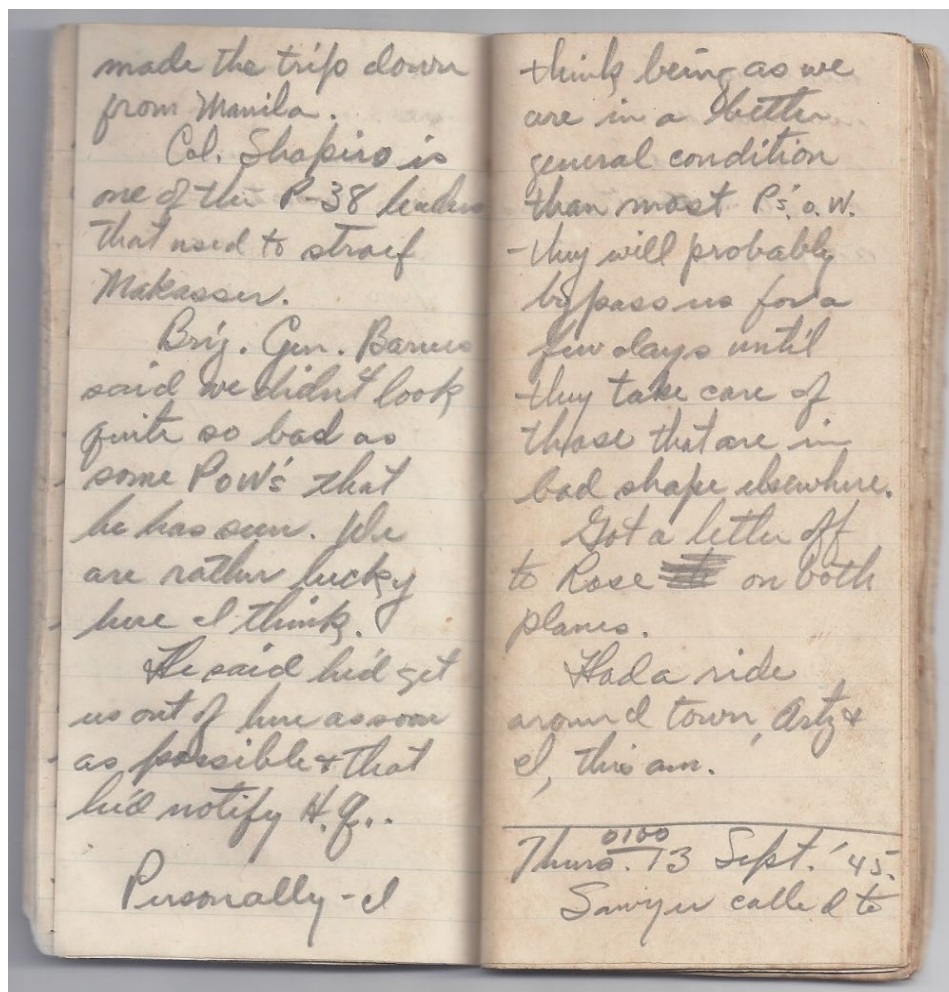 made the trip down
from Manila.
Col. Shapiro is
one of the P-38 leaders
that used to straef
Makasser.
Brig. Gen. Barnes
said we didn't look
quite so bad as
some PoW's that
he has seen. We
are rather lucky
here I think.
He said he'd get
us out of here as soon
as possible & that
he'd notify H.Q..
Personally - I
think being as we
are in a better
general condition
than most P's.o.W.
they will probably
bypass us for a
few days until
they take care of
those that are in
bad shape elsewhere.
Got a letter off
to Rose on both
planes.
Had a ride
around town, Artz &
I, this am.
0100
Thurs. 13 Sept. '45.
Sawyer called to